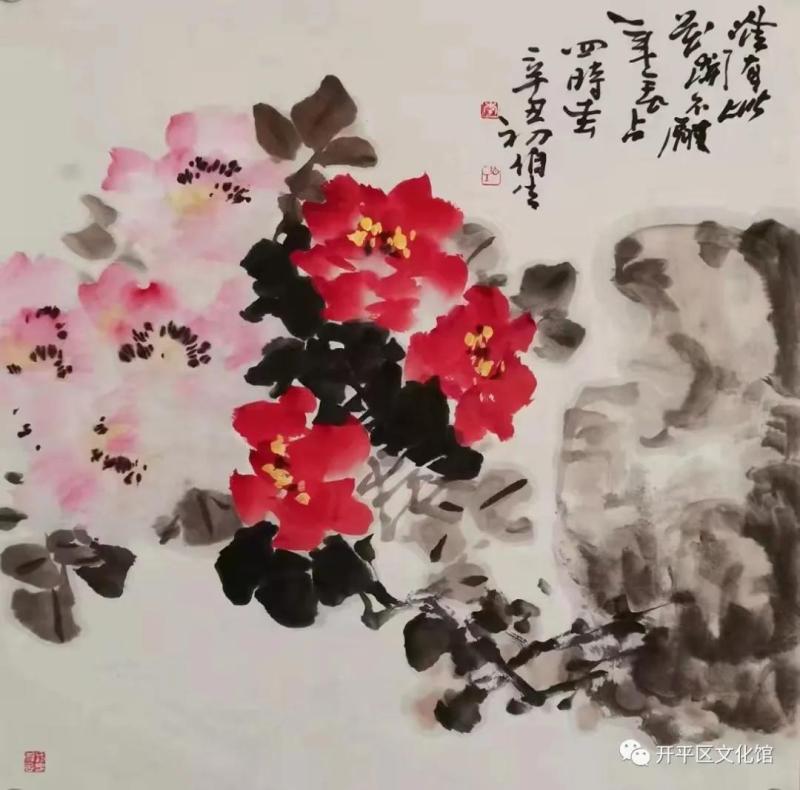 惟有此
花開不厭
一年長占
四時春
辛丑初伯
开平区文化馆